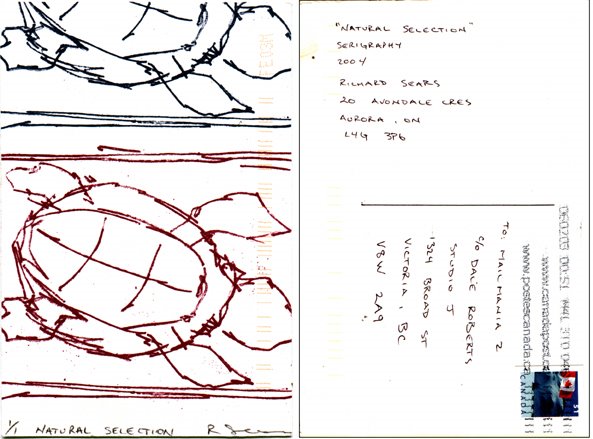 1/1 NATURAL SELECTION
"NATURAL SELECTION"
SERIGRAPHY
2004
RICHARD SEARS
20 AVONDALE CRES
AURORA, ON
L4G 3P6
TO: MAILMANIA 2
c/o DALE ROBERTS
STUDIO J
1324 BROAD ST
VICTORIA, BC
V8W 2A9
060203 00:51 M4L 3T0
www.canadapost.ca
www.postescanada.ca
CANADA